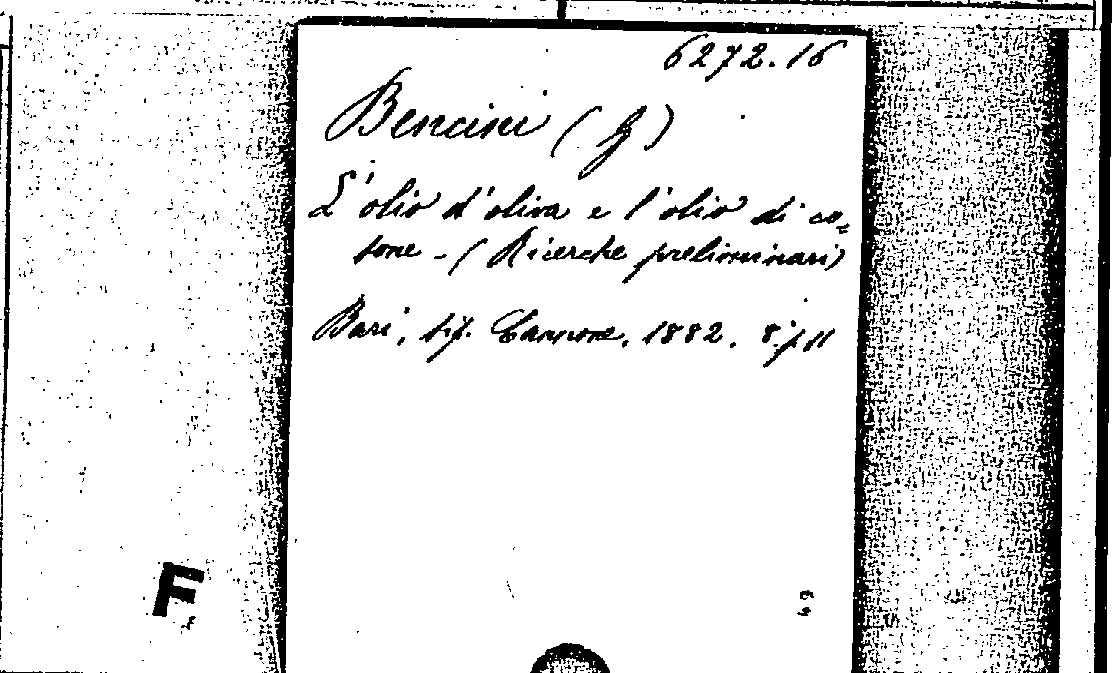 6272.16
Bencini (G)
L'olio d'oliva e l'olio di co=
tone - (Ricerche preliminari)
Bari, tip. Cannone, 1882. 8° p. 11
F